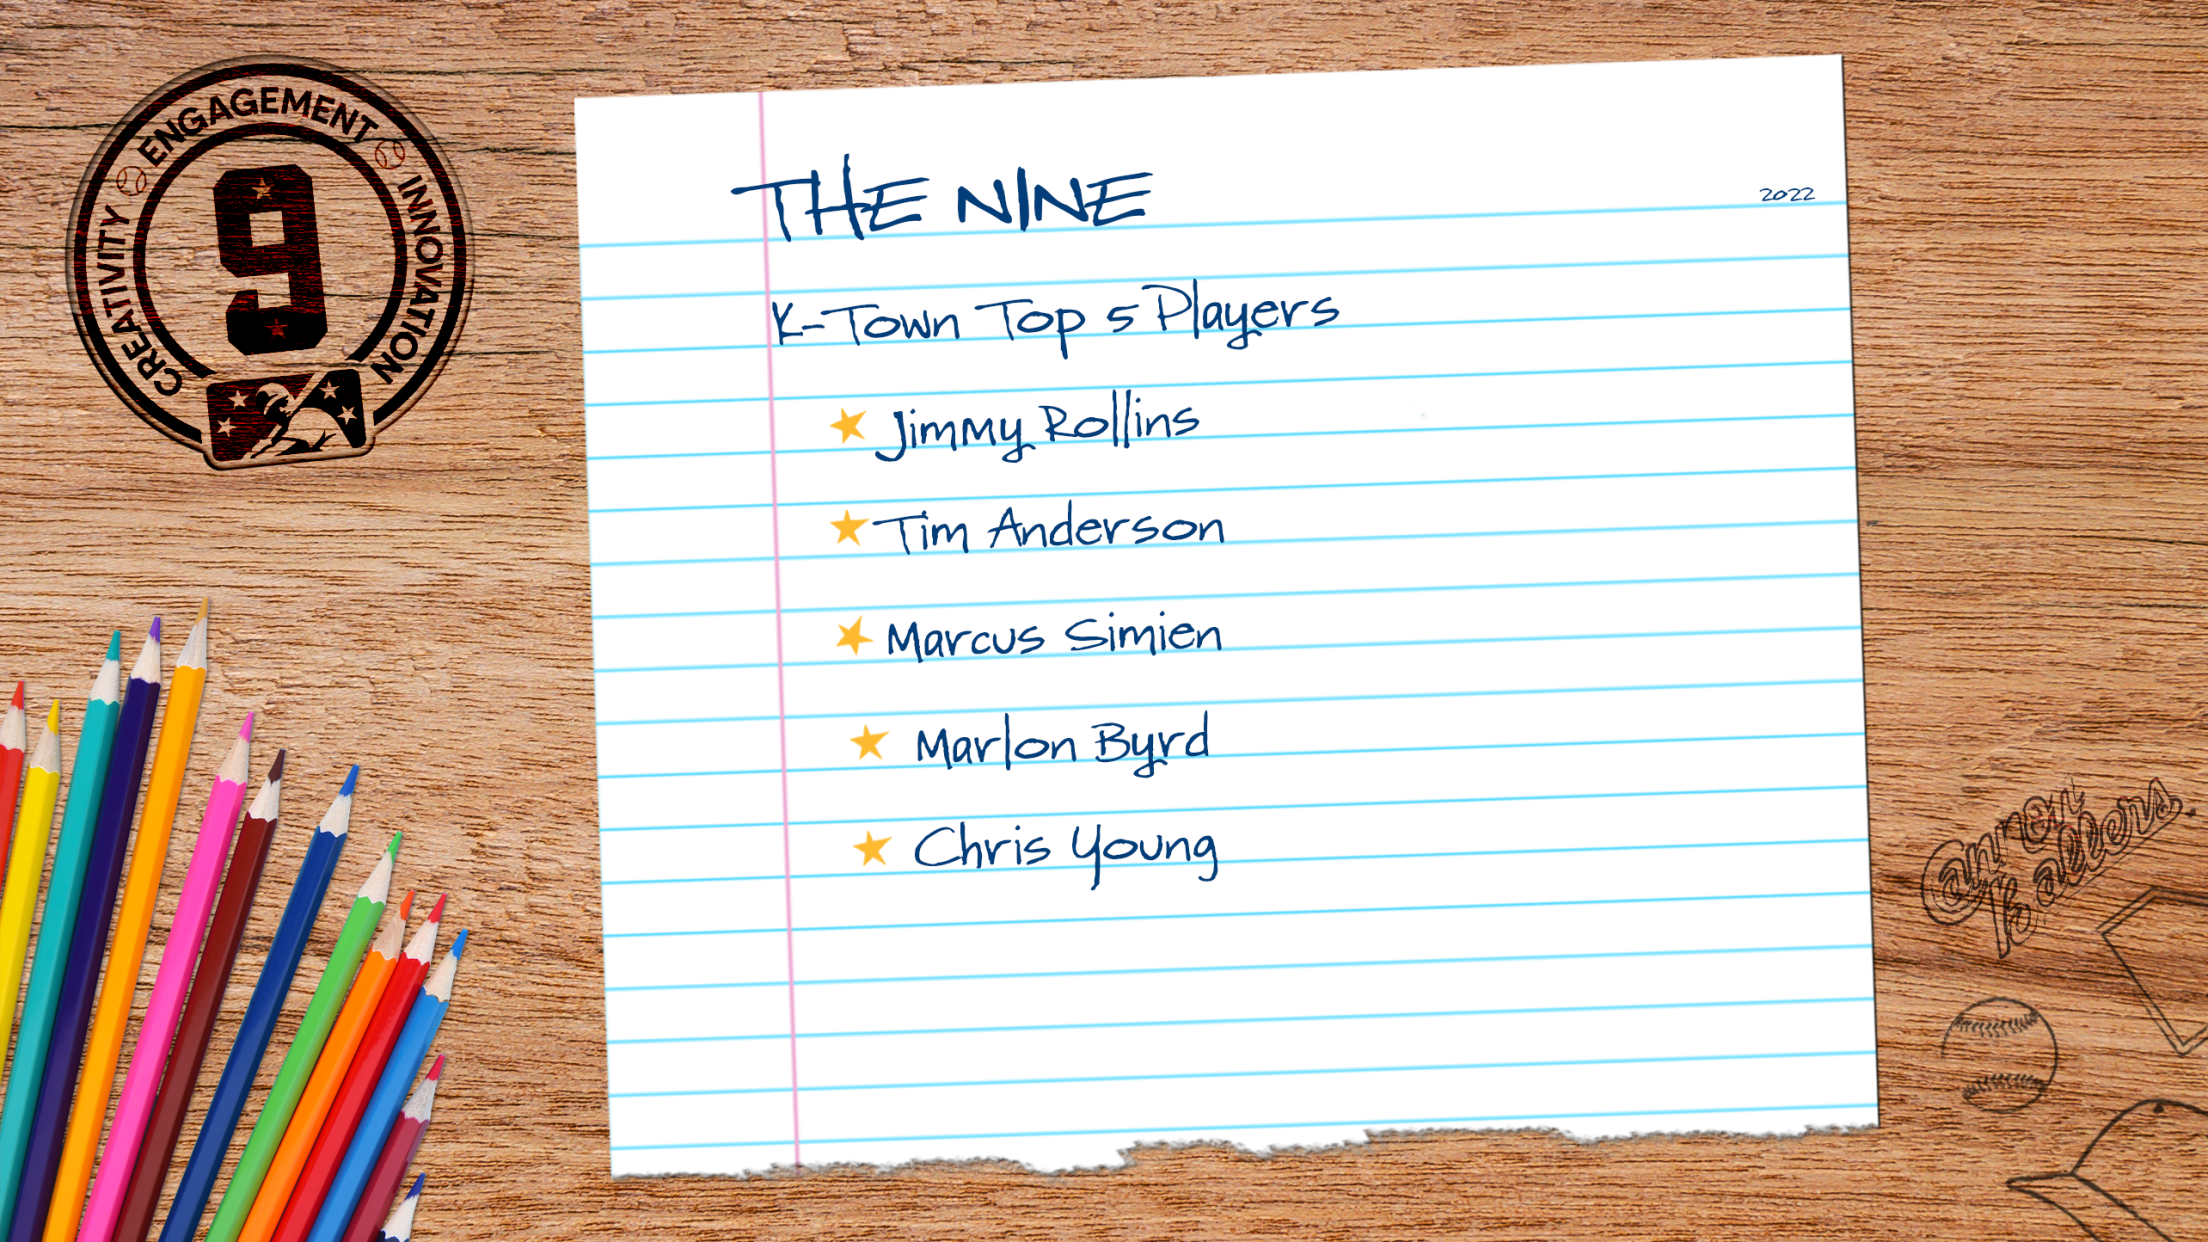 CREATIVITY ENGAGEMENT INNOVATION
9
THE NINE
2022
K-Town Top 5 Players
Jimmy Rollins
Tim Anderson
Marcus Simien
Marlon Byrd
Chris Young